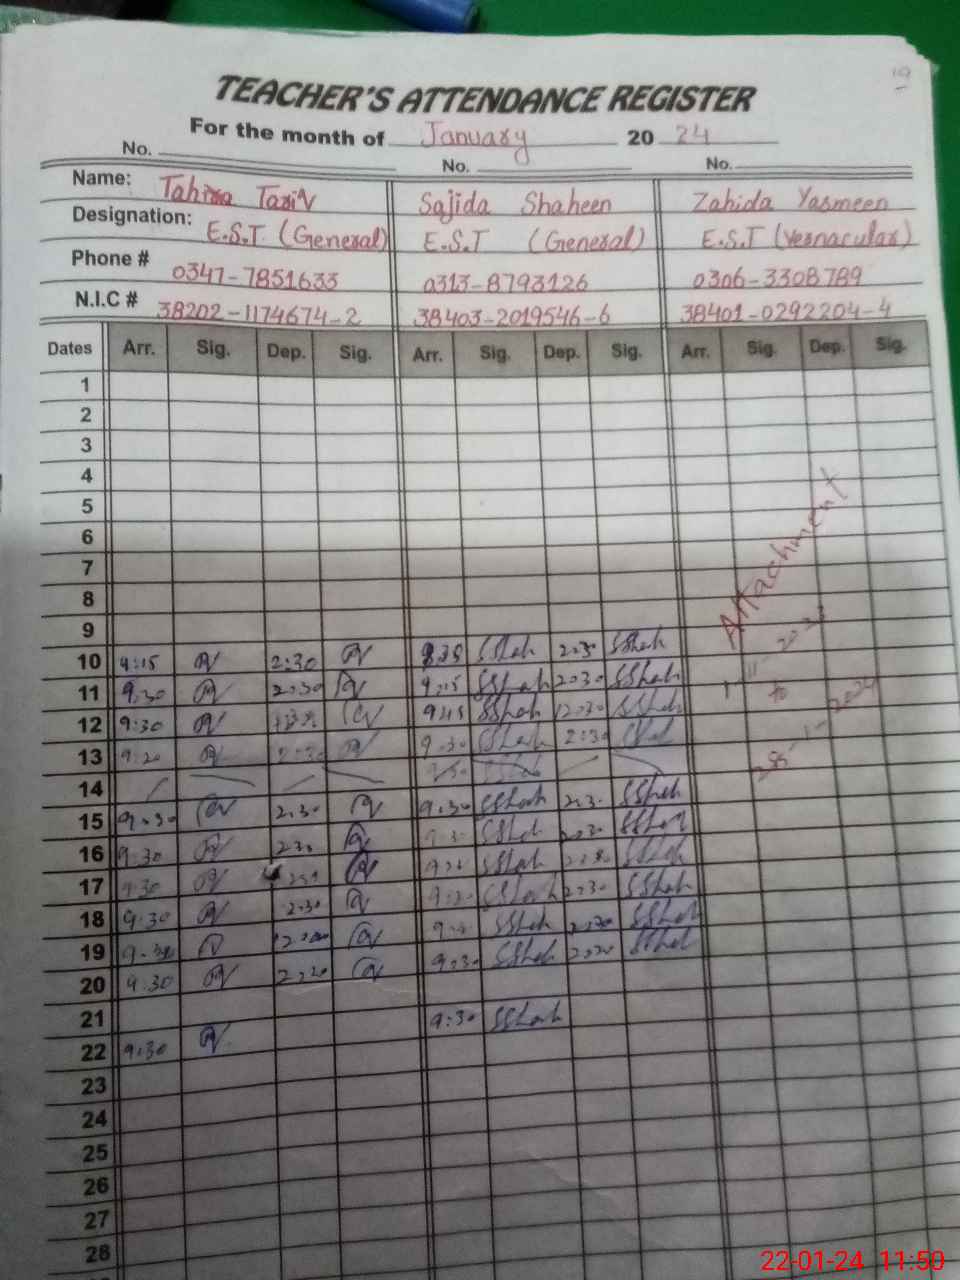 19
TEACHER'S ATTENDANCE REGISTER
For the month of January 20 24
No. No. No.
Name: Tahira Tariq Sajida Shaheen Zahida Yasmeen
Designation: E.S.T (General) E.S.T (General) E.S.T (Vernacular)
Phone # 0347-7851633 0313-8793126 0306-3308789
N.I.C # 38202-1174674-2 38403-2019546-6 38401-0292204-4
Dates Arr. Sig. Dep. Sig. Arr. Sig. Dep. Sig. Arr. Sig. Dep. Sig.
1
2
3
4
5
6
7
8
9
Attachment
10 9:15 2:30 SShah 2:30 SShah
11 9:30 2:30 9:15 SShah 2:30 SShah
to
12 9:30 9:45 SShah 12:30 SShah
13 9:20 2:30 9:30 SShah 2:30 SShah
14
15 9:30 2:30 9:30 SShah 2:30 SShah
16 9:30 2:30 9:30 SShah 2:30 SShah
17 9:30 SShah SShah
18 9:30 2:30 9:30 SShah 2:30 SShah
19 SShah 2:30 SShah
20 9:30 2:30 9:30 SShah 2:30 SShah
21
22 9:30 9:30 SShah
23
24
25
26
27
28
22-01-24 11:50